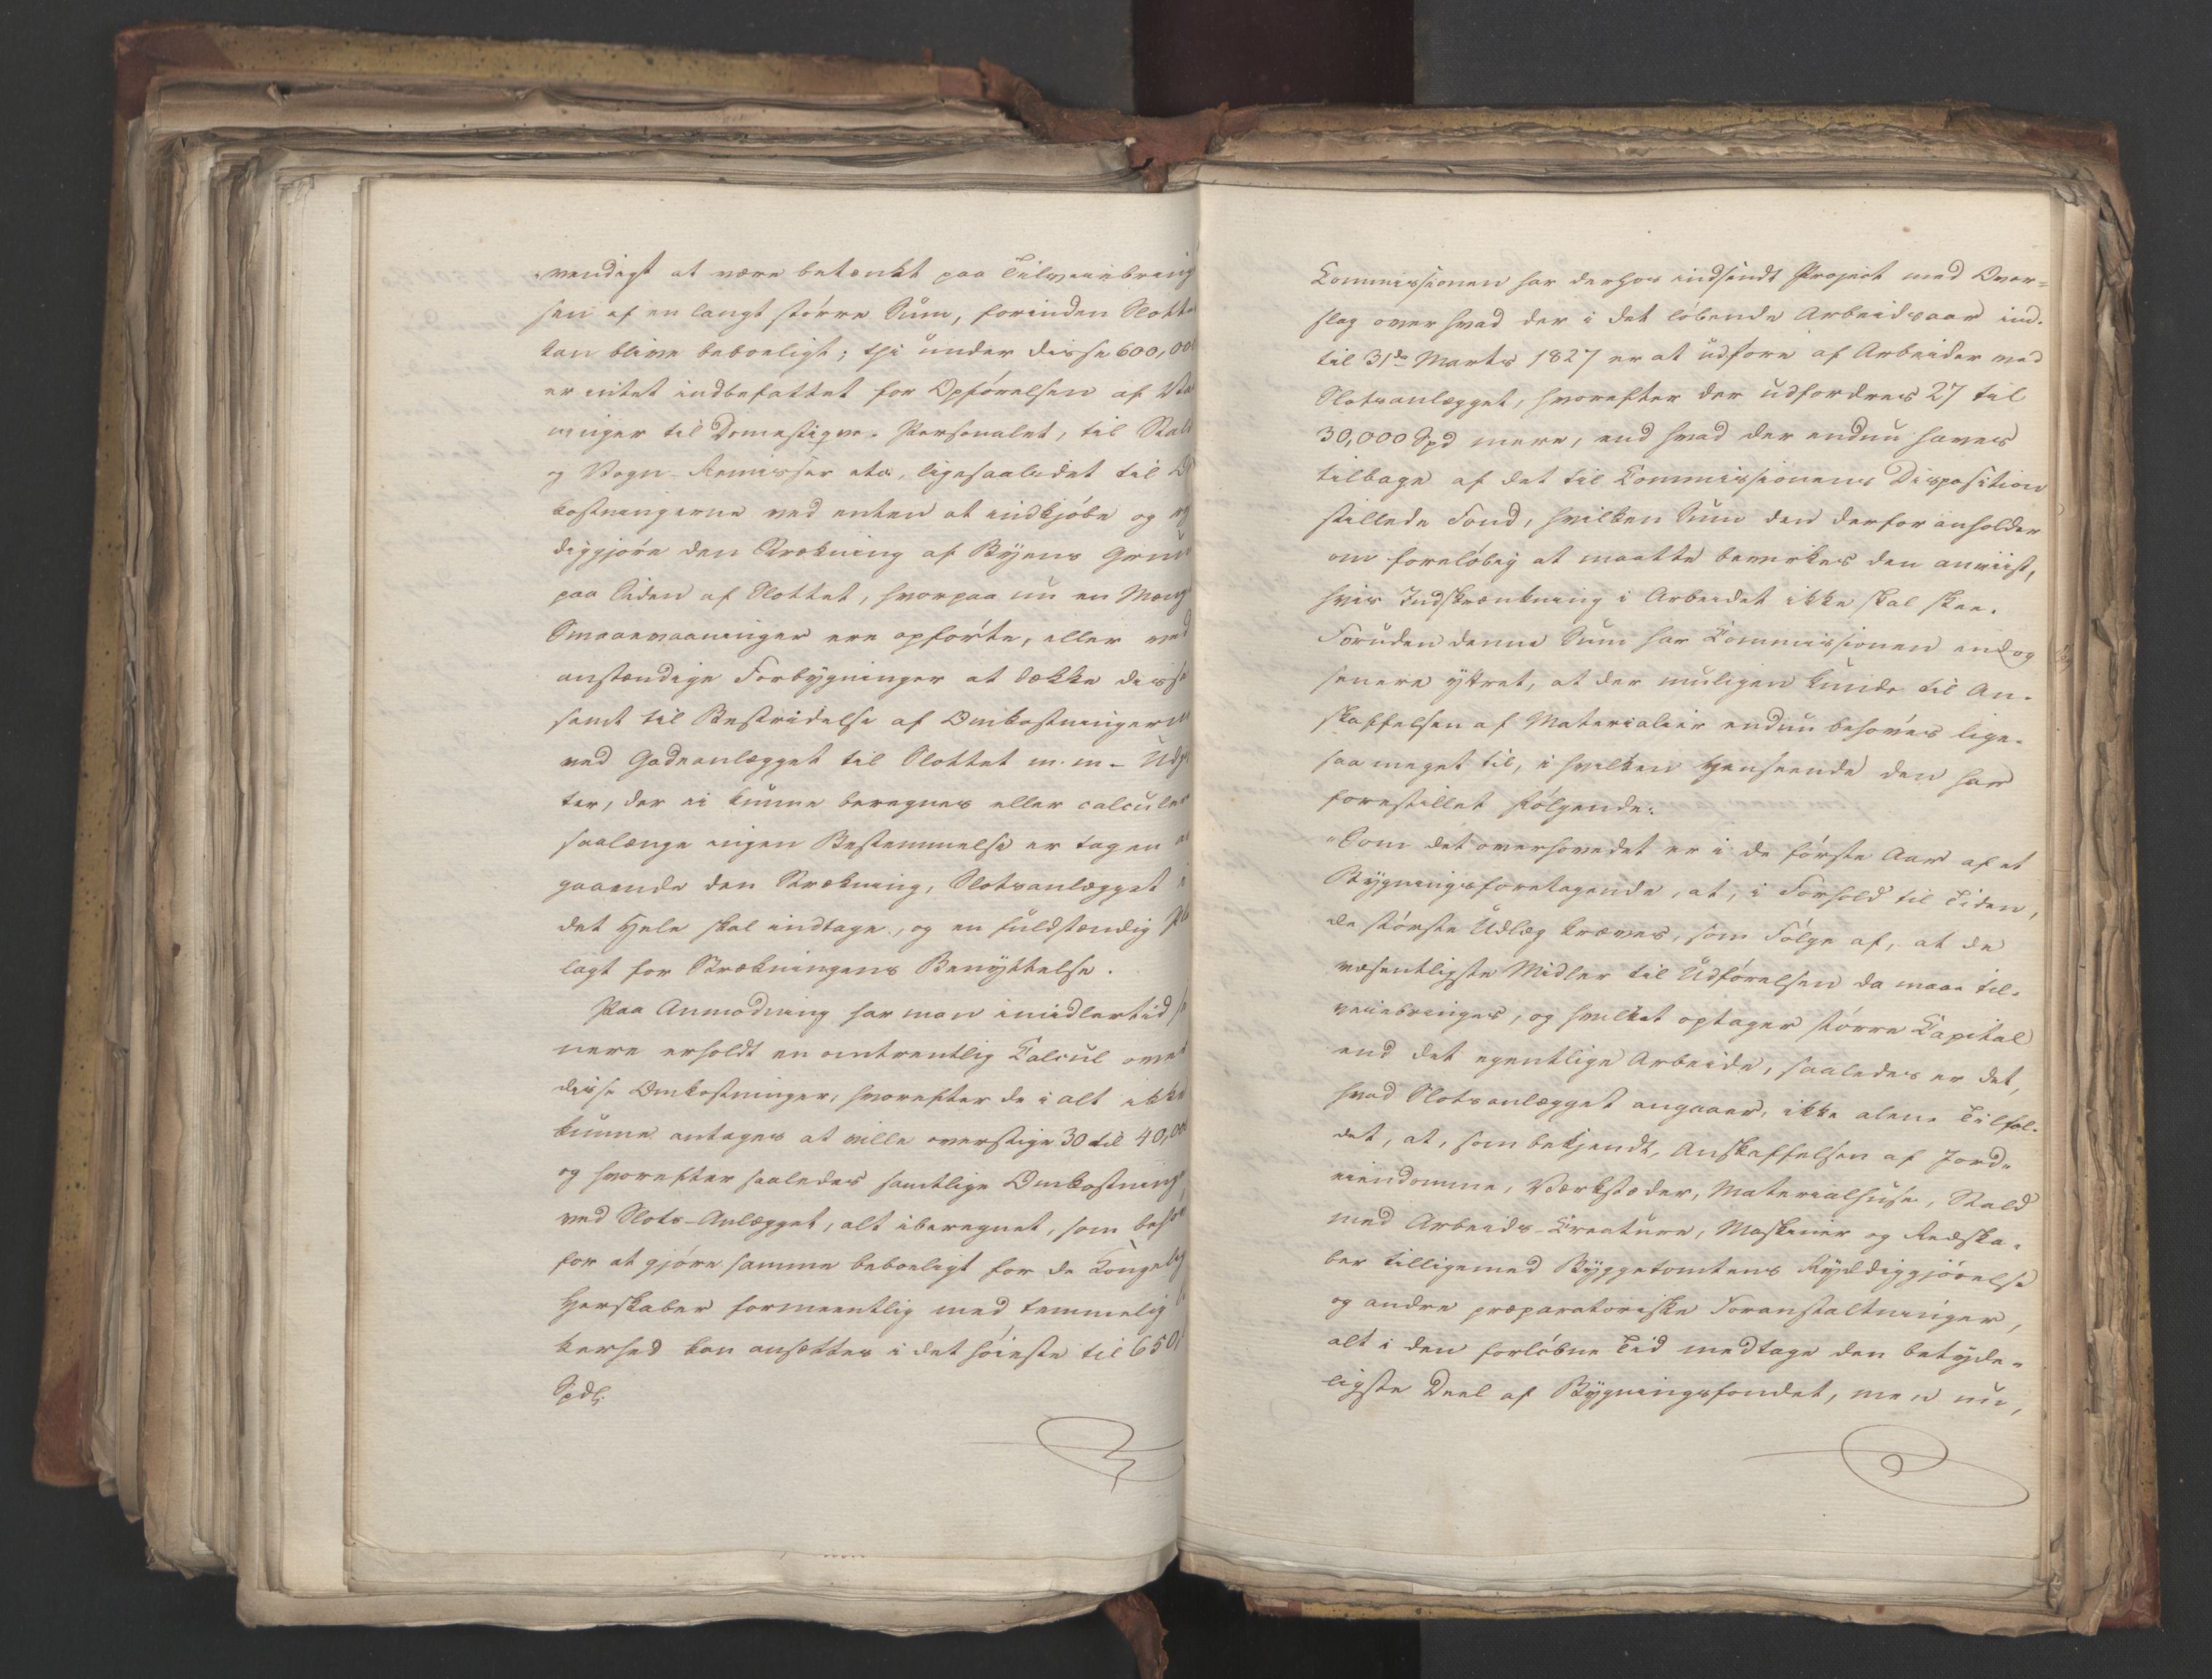 vendigt at være betænkt paa Tilveiebring
sen af en langt større Sum, forinden Slotte
kan blive beboeligt; thi under disse 600,00
er intet indbefattet for Opførelsen af
ninger til Domestique-Personalet, til Stald
og Vogn-Remisser etc., ligesaalidet til
kostningerne ved enten at indkjøbe og ry
diggjøre den Strækning af Byens Grun
paa Siden af Slottet, hvorpaa nu en Mæng
Smaavaaninger ere opførte, eller ved
anstændige Forbygninger at dække disse
samt til Bestridelse af Omkostningern
ved Gadeanlægget til Slottet m. m. – Udgi
ter, der ei kunne beregnes eller calculer
saalænge ingen Bestemmelse er tagen an
gaaende den Strækning, Slotsanlægget i
det Hele skal indtage, og en fuldstændig Pla
lagt for Strækningens Benyttelse.
Paa Anmodning har man imidlertid se
nere erholdt en omtrentlig Calcul over
disse Omkostninger, hvorefter de i alt ikke
kunne antages at ville overstige 30 til 40,00
og hvorefter saaledes samtlige Omkostning
ved Slots-Anlægget, alt iberegnet, som behø
for at gjøre samme beboeligt for de Kongelig
Herskaber formeentlig med temmelig
kerhed kan ansættes i det høieste til 650,
Spdl.
Commissionen har derhos indsendt Project med Over=
slag over hvad der i det løbende Arbeidsaar ind-
til 31de Marts 1827 er at udføre af Arbeider ved
Slotsanlægget, hvorefter der udfordres 27 til
30,000 Spd mere, end hvad der endnu haves
tilbage af det til Commissionens Disposition
stillede Fond, hvilken Sum den derfor anholder
om foreløbig at maatte bevirkes den anviist,
hvis Indskrænkning i Arbeidet ikke skal skee.
Foruden denne Sum har Commissionen endog
senere yttret, at der muligen kunde til An-
skaffelsen af Materialier endnu behøves lige-
saa meget til, i hvilken Henseende den har
forestillet Følgende:
"Som det overhovedet er i de første Aar af et
Bygningsforetagende, at, i Forhold til Tiden,
de største Udlæg kræves, som Følge af, at de
væsentligste Midler til Udførelsen da maae til-
veiebringes, og hvilket optager større Capital
end det egentlige Arbeide, saaledes er det,
hvad Slotsanlægget angaaer, ikke alene Tilfæl-
det, at, som bekjendt, Anskaffelsen af Jord-
eiendomme, Værkstæder, Materialhuse, Stald
med Arbeids-Creature, Maskiner og Redska-
ber tilligemed Byggetomtens Ryddiggjørelse
og andre præparatoriske Foranstaltninger,
alt i den forløbne Tid medtage den betyde-
ligste Deel af Bygningsfondet, men nu,